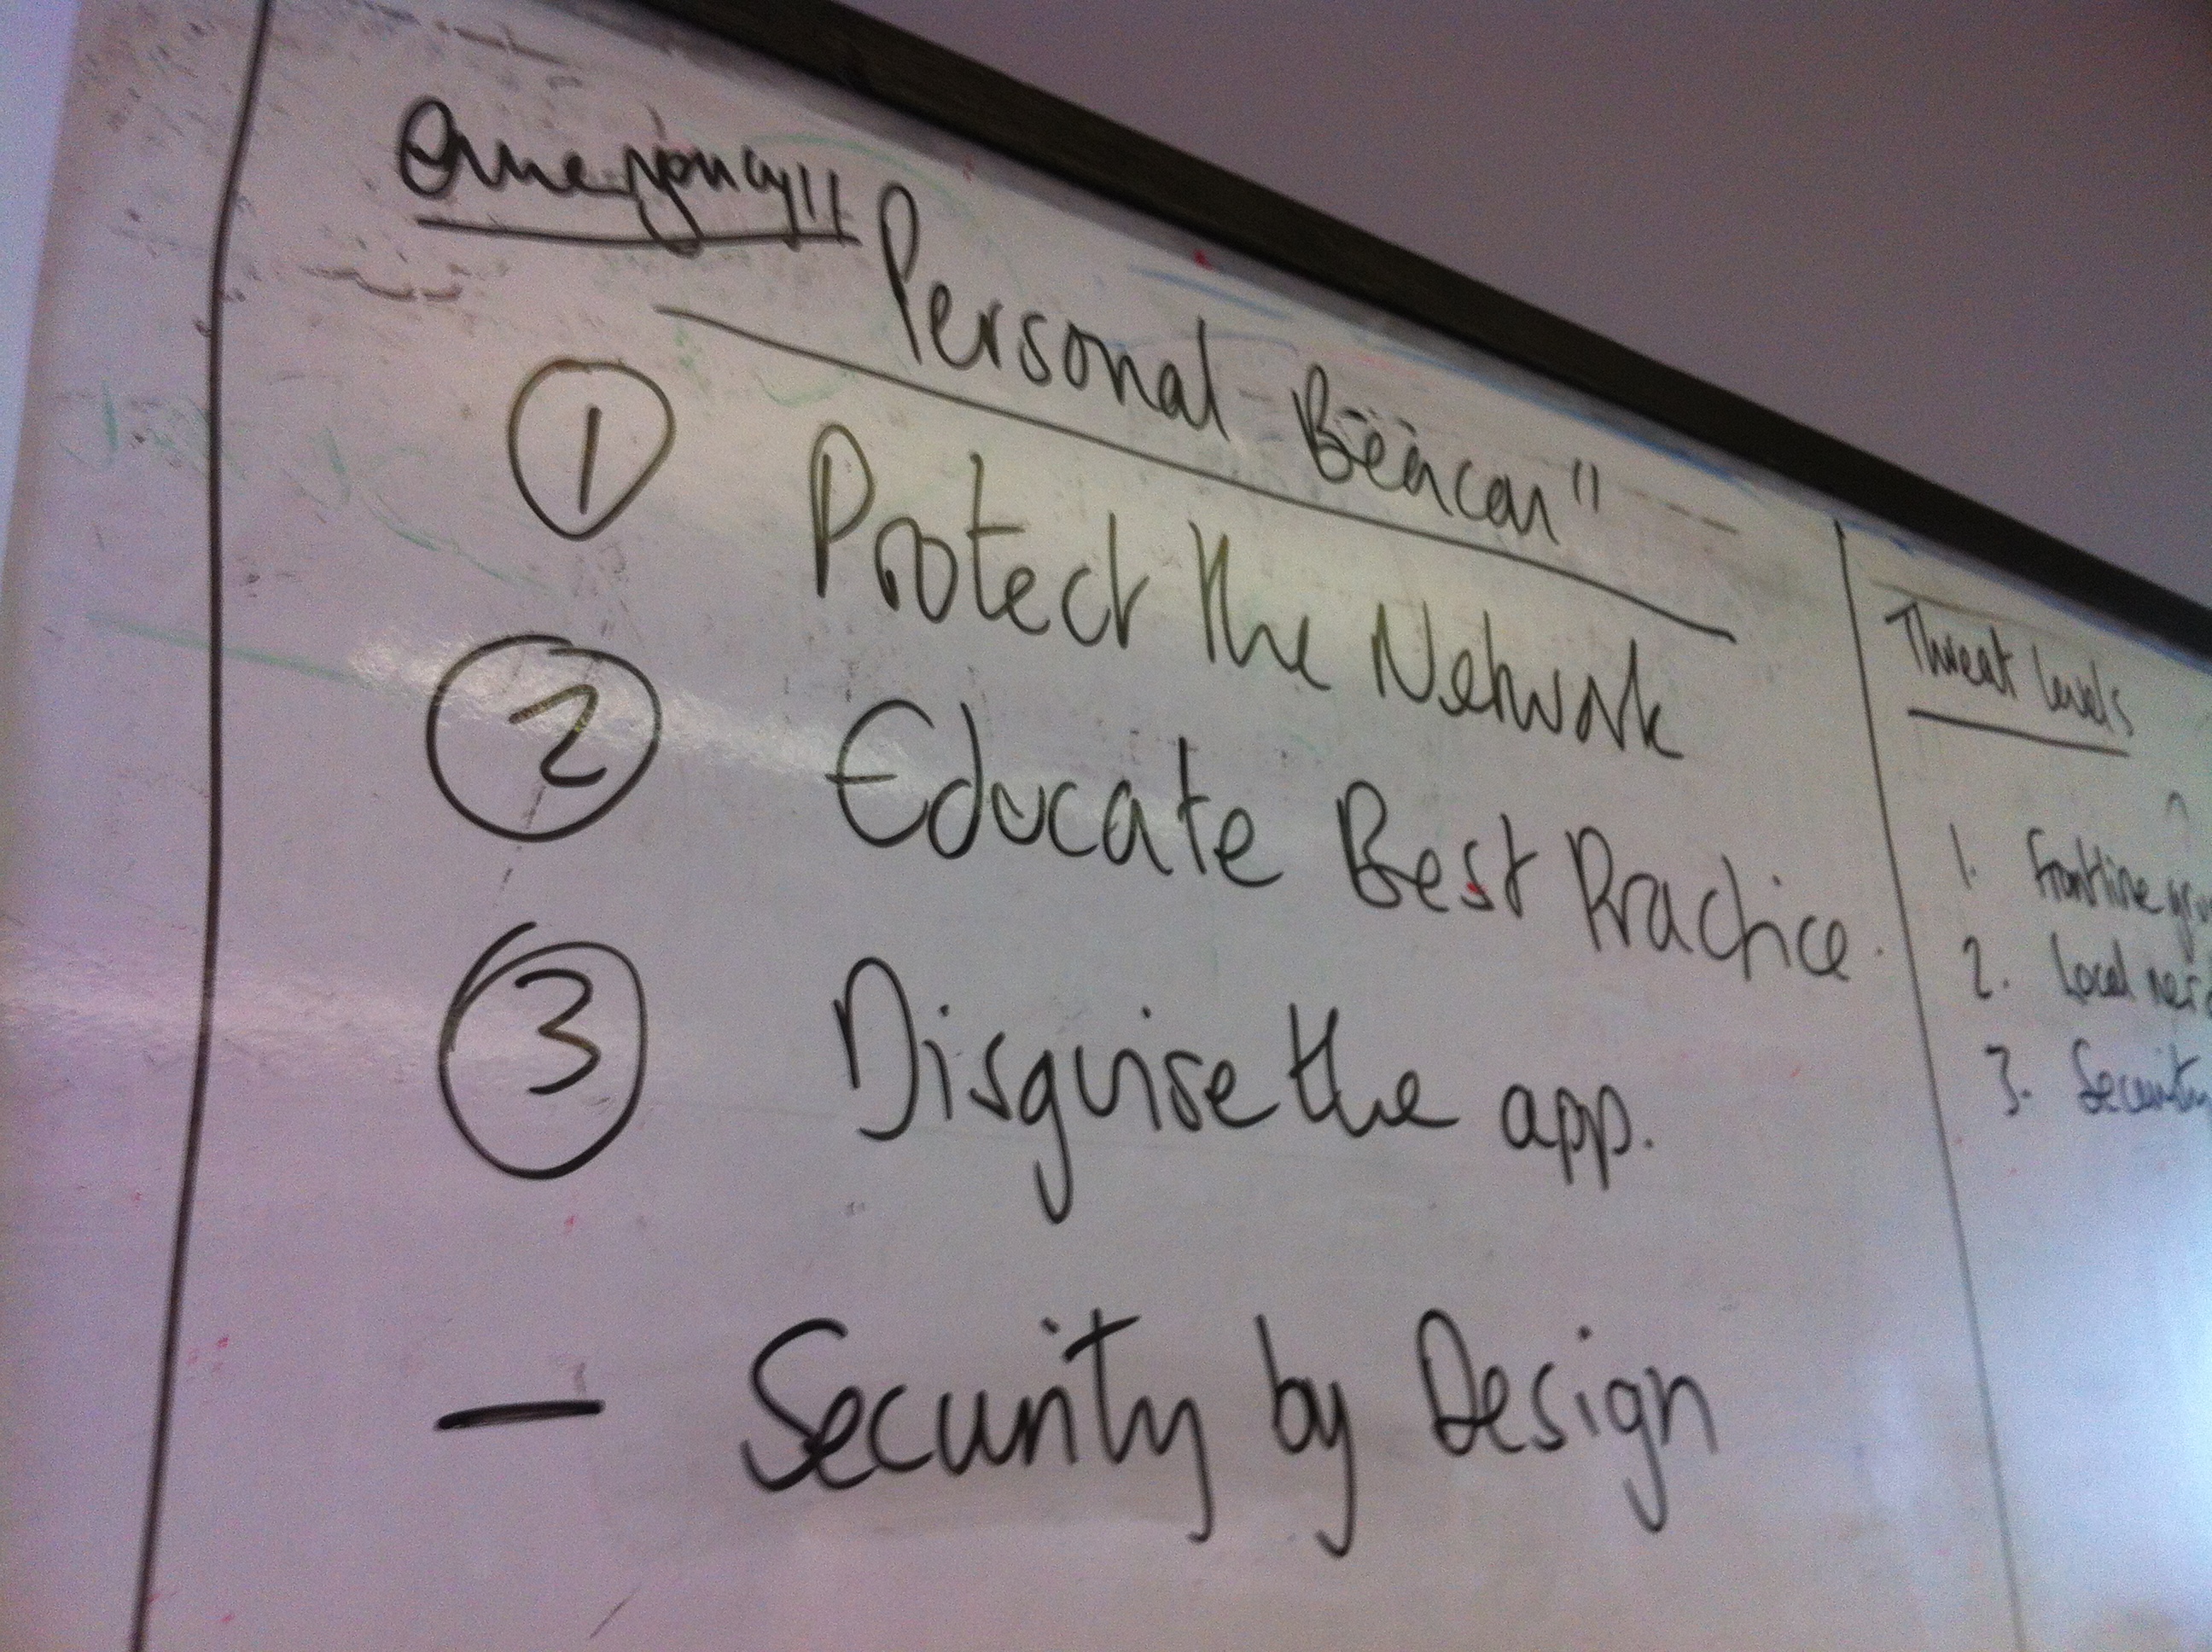 emergency"
Personal Beacon"
1 Protect the Network
2 Educate Best Practice.
3 Disguise the app.
— Security by Design
Threat levels
1. Frontline
2. Local
3. Security